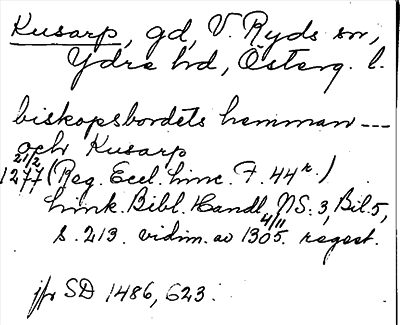 Kusarp, gd, V. Ryds sn,
Ydre hd, Österg. l.
biskopsbordets hemman ---
och Kusarp
21/2
1277 (Reg. Eccl. Linc. F. 44r.)
Link. Bibl. Handl. NS. 3, Bil. 5,
s. 213. vidim. av 4/11 1305. regest.
jfr SD 1486, 623.